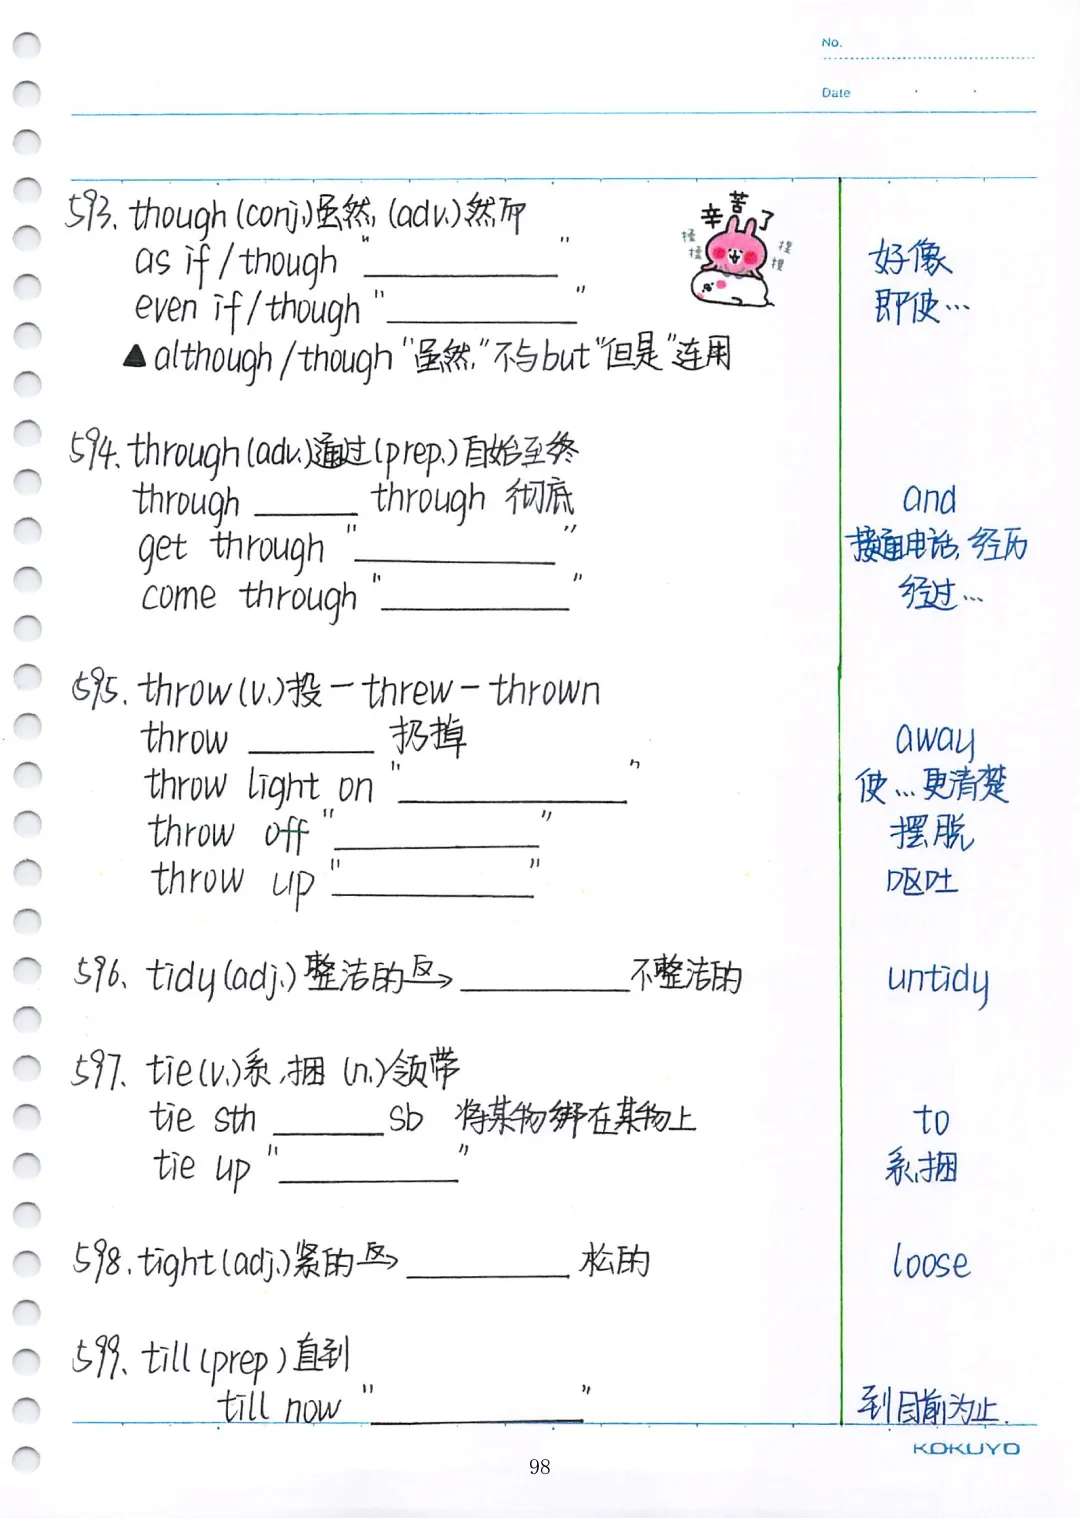 No.
Date
593. though (conj.)虽然, (adv.)然而
辛苦了
揉揉 捏捏
as if / though "________" 好像
even if / though "________" 即使…
▲ although / though "虽然,"不与but"但是"连用
594. through (adv.)通过 (prep.)自始至终
through ________ through 彻底 and
get through "________" 接通电话, 经历
come through "________" 经过…
595. throw (v.)投 — threw — thrown
throw ________ 扔掉 away
throw light on "________" 使…更清楚
throw off "________" 摆脱
throw up "________" 呕吐
596. tidy (adj.) 整洁的 反→ ________ 不整洁的 untidy
597. tie (v.)系,捆 (n.)领带
tie sth ________ sb 将某物绑在某物上 to
tie up "________" 系,捆
598. tight (adj.)紧的 反→ ________ 松的 loose
599. till (prep) 直到
till now "________" 到目前为止.
KOKUYO
98